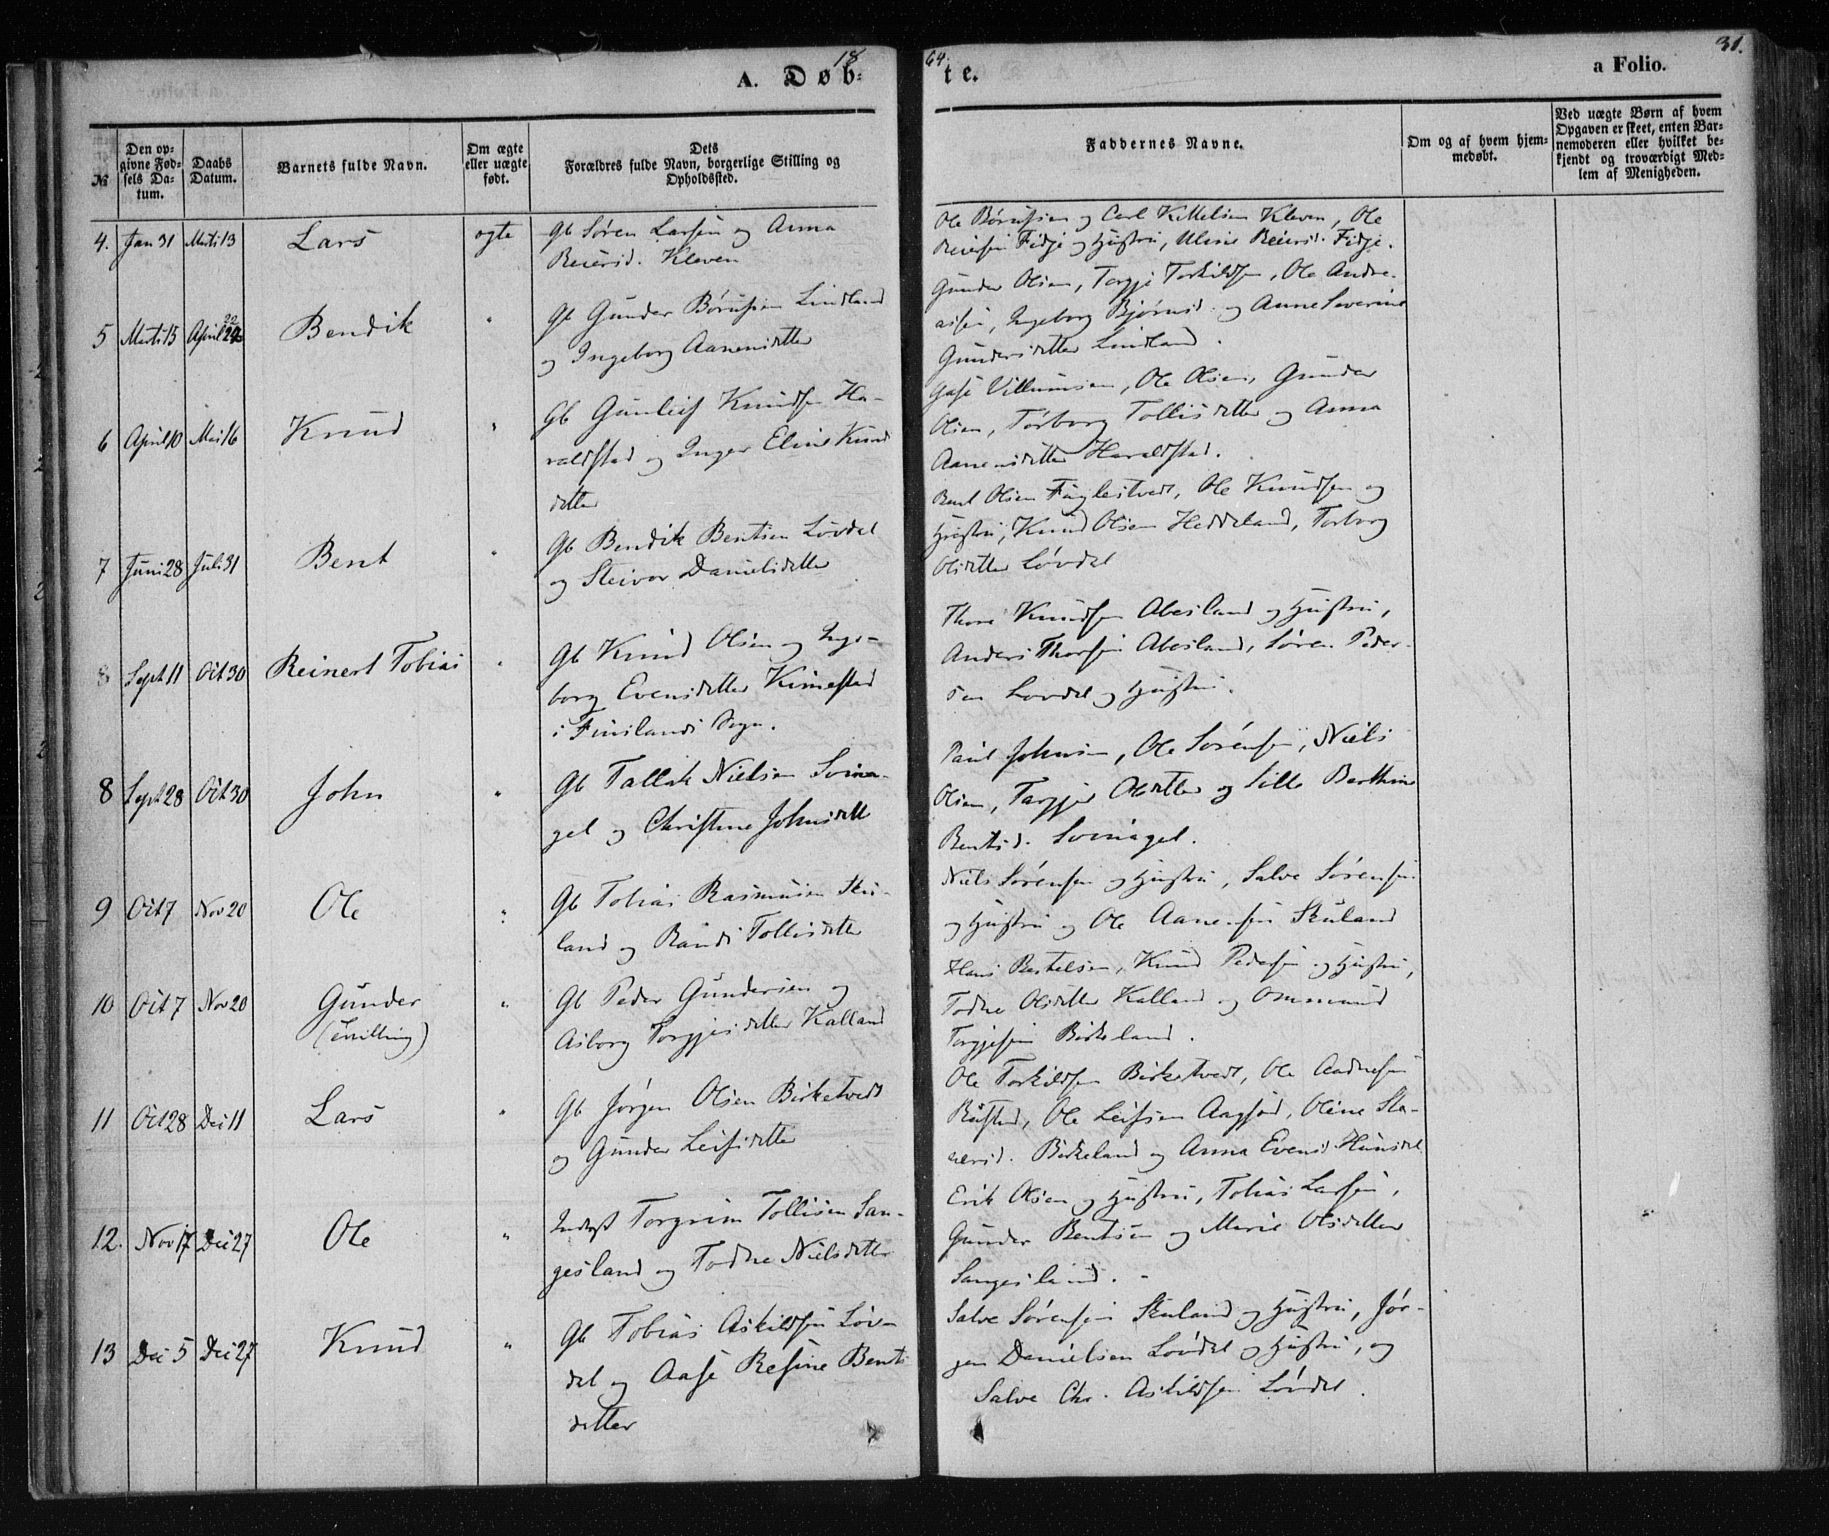 18 64.
31.
A. Døb-
te.
a Folio.
№
Den op-
givne Fød-
sels Da-
tum.
Daabs
Datum.
Barnets fulde Navn.
Om ægte
eller uægte
født.
Dets
Forældres fulde Navn, borgerlige Stilling og
Opholdssted.
Faddernes Navne.
Om og af hvem hjem-
medøbt.
Ved uægte Børn af hvem
Opgaven er skeet, enten Bar-
nemoderen eller hvilket be-
kjendt og troværdigt Med-
lem af Menigheden.
4. Jan 31 Marti 13 Lars ægte
Gb Søren Larsen og Anna
Reiersd. Kleven
Ole Børufsen og Carl Kittelsen Kleven, Ole
Reiersen Fidje og Hustru, Reiersd. Fidje.
5 Marti 13 April 22 Bendik "
Gb Gunder Børufsen Lindland
og Ingeborg Aanensdatter
Gunder Olsen, Torkildsen, Ole Andre-
asen, Ingeborg Bjørnsd. og Anne Severine
Gundersdatter Lindland.
6 April 10 Mai 16 Knud "
Gb Gunleif Knudsen Ha-
raldstad og Inger Eline Knud
datter
Villumsen, Ole Olsen, Gunder
Olsen, Torborg Tollisdatter og Anna
Aanensdatter Haraldstad.
7 Juni 28 Juli 31 Bent "
Gb Bendik Bentsen Løvdal
og Steivor Danielsdatter
Bent Olsen Fuglestvedt, Ole Knudsen og
Hustru, Knud Olsen Heddeland, Torborg
Olsdatter Løvdal
8 Sept 11 Oct 30 Reinert Tobias "
Gb Knud Olsen og Inge-
borg Evensdatter Kimestad
i Finslands Sogn.
Thore Knudsen Abesland og Hustru,
Anders Thorsen Abesland, Søren Peder-
sen Løvdal og Hustru.
8 Sept 28 Oct 30 John "
Gb Tallak Nielsen Svina-
gel og Christine Johnsdatt
Paul Johnsen, Ole Sørensen, Niels
Olsen, Targjer Olsdatter og Sille Barthine
Bentsd. Svinagel.
9 Oct 7 Nov 20 Ole "
Gb Tobias Rasmusen Sku-
land og Randi Tollisdatter
Niels Sørensen og Hustru, Salve Sørensen
og Hustru og Ole Aanensen Skuland
10 Oct 7 Nov 20 Gunder "
(Tvilling)
Gb Peder Gundersen og
Asborg Torgjesdatter Kalland
Hans Bertelsen, Knud Pedersen og Hustru,
Todne Olsdatter Kalland og Ommund
Torgjesen Birkeland.
11 Oct 28 Dec 11 Lars "
Gb Jørgen Olsen Birketvedt
og Gunder Leifsdatter
Ole Torkildsen Birketvedt, Ole Aadnesen
Rustad, Ole Leifsen Oline Sta-
nersd. Birkeland og Anna Evensd. Hunsdal
12. Nov 17 Dec 27 Ole "
Inderst Torgrim Tollisen San-
gesland og Todne Nielsdatter
Erik Olsen og Hustru, Tobias Larsen,
Gunder Bentsen og Marie Olsdatter
Sangesland.
13 Dec 5 Dec 27 Knud "
Gb Tobias Askildsen Løv-
dal og Aase Resine Bents
datter
Salve Sørensen Skuland og Hustru, Jør-
gen Danielsen Løvdal og Hustru, og
Salve Chr. Askildsen Løvdal.